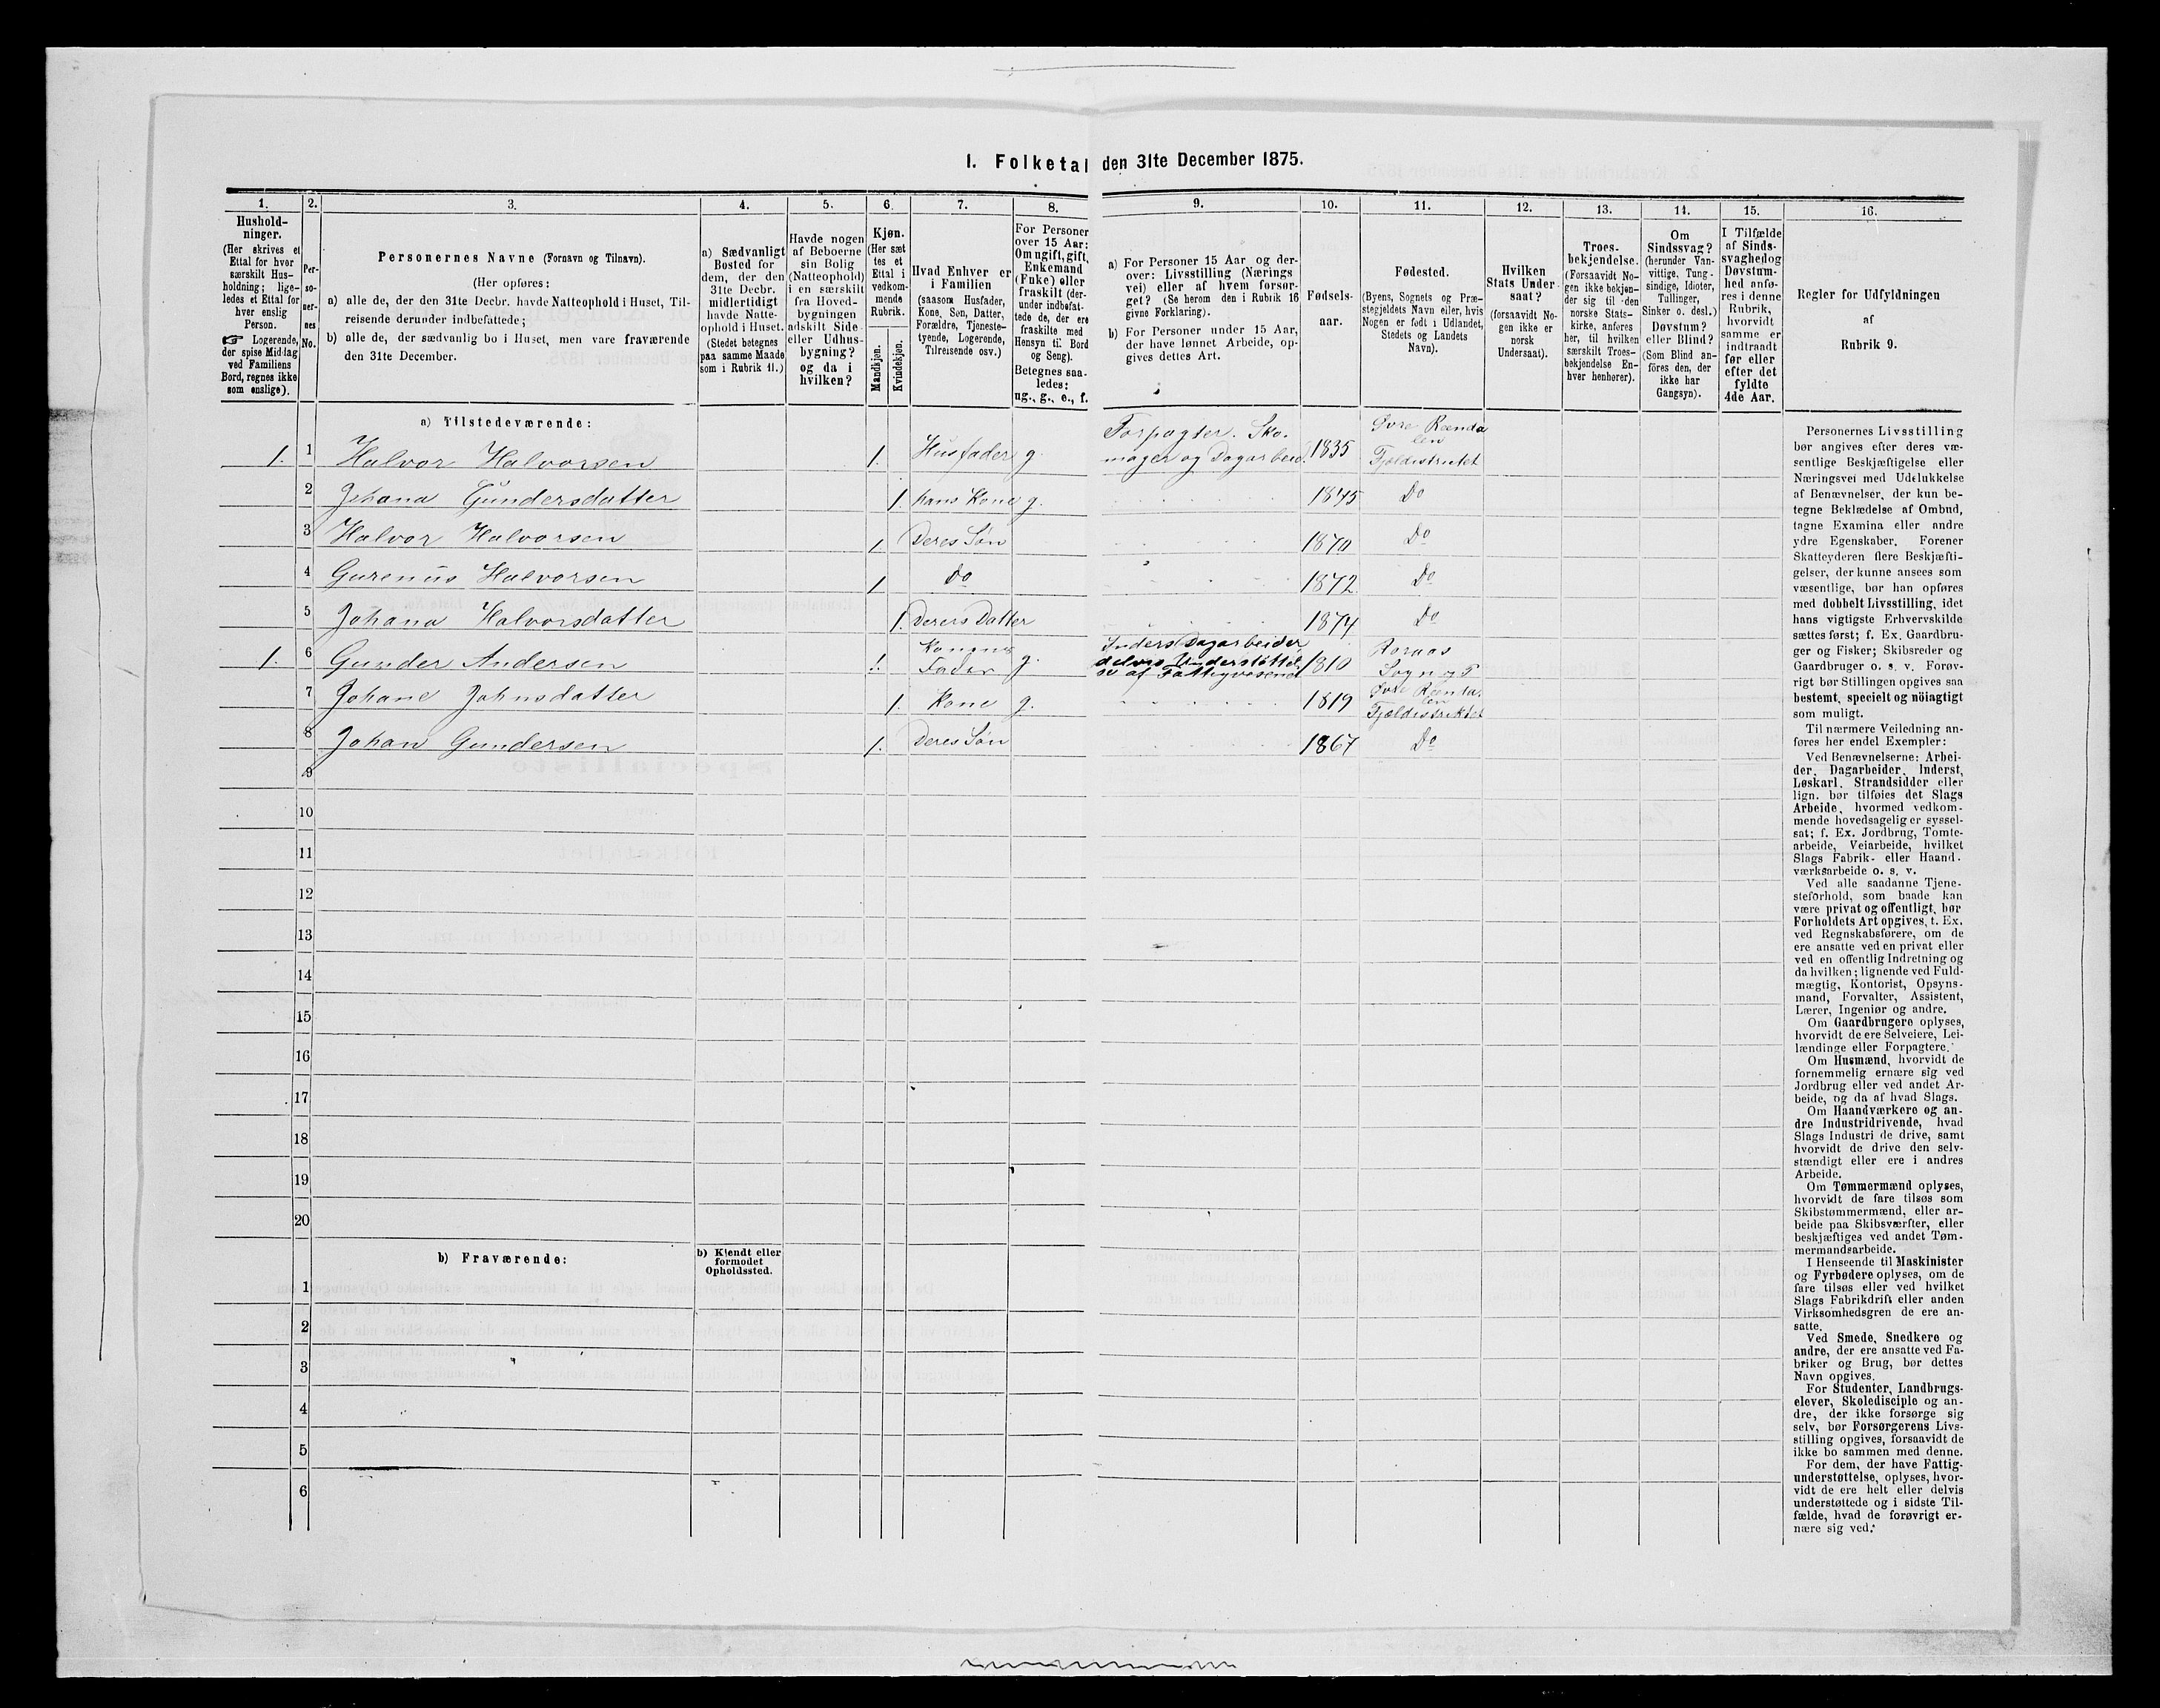 1. Folketal den 31te December 1875.
1.
2.
3.
4.
5.
6.
7.
8.
9.
10.
11.
12.
13.
14.
15.
16.
Hushold-
ninger.
(Her skrives et
Ettal for hver
særskilt Hus-
holdning; lige-
ledes et Ettal for
hver enslig
Person.
☞ Logerende,
der spise Middag
ved Familiens
Bord, regnes ikke
som enslige).
Per-
so-
ner-
nes
No.
Personernes Navne (Fornavn og Tilnavn).
(Her opføres:
a) alle de, der den 31te Decbr. havde Natteophold i Huset, Til-
reisende derunder indbefattede;
b) alle de, der sædvanlig bo i Huset, men vare fraværende
den 31te December.
a) Sædvanligt
Bosted for
dem, der den
31te Decbr.
midlertidigt
havde Natte-
ophold i Huset.
(Stedet betegnes
paa samme Maade
som i Rubrik 11.)
Havde nogen
af Beboerne
sin Bolig
(Natteophold)
i en særskilt
fra Hoved-
bygningen
adskilt Side-
eller Udhus-
bygning?
og da i
hvilken?
Kjøn.
(Her sæt
tes et
Ettal i
vedkom-
mende
Rubrik.
Mandkjøn.
Kvindekjøn.
Hvad Enhver er
i Familien
(saasom Husfader,
Kone, Søn, Datter,
Forældre, Tjeneste-
tyende, Logerende,
Tilreisende osv.)
For Personer
over 15 Aar:
Om ugift, gift,
Enkemand
(Enke) eller
fraskilt (der-
under indbefat-
tede de, der ere
fraskilte med
Hensyn til Bord
og Seng).
Betegnes saa-
ledes:
ug., g., e., f.
a) For Personer 15 Aar og der-
over: Livsstilling (Nærings
vei) eller af hvem forsør-
get? (Se herom den i Rubrik 16
givne Forklaring).
b) For Personer under 15 Aar,
der have lønnet Arbeide, op-
gives dettes Art.
Fødsels-
aar.
Fødested.
(Byens, Sognets og Præ-
stegjeldets Navn eller, hvis
Nogen er født i Udlandet,
Stedets og Landets
Navn).
Hvilken
Stats Under-
saat?
(forsaavidt No-
gen ikke er
norsk
Undersaat).
Troes-
bekjendelse.
(Forsaavidt No-
gen ikke bekjen-
der sig til den
norske Stats-
kirke, anføres
her, til hvilken
særskilt Troes-
bekjendelse En-
hver henhører).
Om
Sindssvag?
(herunder Van-
vittige, Tung-
sindige, Idioter,
Tullinger,
Sinker o. desl.)
Døvstum?
eller Blind?
(Som Blind an-
föres den, der
ikke har
Gangsyn).
I Tilfælde
af Sinds-
svaghed og
Døvstum-
hed anfø-
res i denne
Rubrik,
hvorvidt
samme er
indtraadt
før eller
efter det
fyldte
4de Aar.
Regler for Udfyldningen
af
Rubrik 9.
a) Tilstedeværende:
1. 1 Halvor Halvorsen 1. Husfader g. Forpagter. Sko-
mager og Dagarbeid. 1835 Øvre Renda
len
Fjeldistriktet
2 Johana Gundersdatter 1. hans Kone g. 1845 Do
3 Halvor Halvorsen 1 Deres Søn 1870 Do
4 Gurenus Halvorsen 1 Do 1872. Do
5 Johana Halvorsdatter 1. Deres Datter 1874 Do
1. 6 Gunder Andersen 1. Konens
Fader g. Inders Dagarbeider
delvis Understöttel
se af Fattigvæsenet 1810 Roraas
Sogn
7 Johane Johnsdatter 1. Kone g. 1819 Øvre Renda
len
Fjeldistriktet
8 Johan Gundersen 1. Deres Søn 1867 Do
9
10
11
12
13
14
15
16
17
18
19
20
b) Fraværende:
b) Kjendt eller
formodet
Opholdssted.
1
2
3
4
5
6
Personernes Livsstilling
bør angives efter deres væ-
sentlige Beskjæftigelse eller
Næringsvei med Udelukkelse
af Benævnelser, der kun be-
tegne Beklædelse af Ombud,
tagne Examina eller andre
ydre Egenskaber. Forener
Skatteyderen flere Beskjæfti-
gelser, der kunne ansees som
væsentlige, bør han opføres
med dobbelt Livsstilling, idet
hans vigtigste Erhvervskilde
sættes først; f. Ex. Gaardbru-
ger og Fisker; Skibsreder og
Gaardbruger o. s. v. Forøv-
rigt bør Stillingen opgives saa
bestemt, specielt og nöiagtigt
som muligt.
Til nærmere Veiledning an-
føres her endel Exempler:
Ved Benævnelserne: Arbei-
der, Dagarbeider, Inderst,
Løskarl, Strandsidder eller
lign. bør tilføies det Slags
Arbeide, hvormed vedkom-
mende hovedsagelig er syssel-
sat; f. Ex. Jordbrug, Tomte-
arbeide, Veiarbeide, hvilket
Slags Fabrik- eller Haand-
værksarbeide o. s. v.
Ved alle saadanne Tjene-
steforhold, som baade kan
være privat og offentligt, bør
Forholdets Art opgives, t. Ex.
ved Regnskabsførere, om de
ere ansatte ved en privat eller
ved en offentlig Indretning og
da hvilken; lignende ved Fuld-
mægtig, Kontorist, Opsyns-
mand, Forvalter, Assistent,
Lærer, Ingeniør og andre.
Om Gaardbrugere oplyses,
hvorvidt de ere Selveiere, Lei-
lændinge eller Forpagtere.
Om Husmænd, hvorvidt de
fornemmelig ernære sig ved
Jordbrug eller ved andet Ar-
beide, og da af hvad Slags.
Om Haandværkere og an-
dre Industridrivende, hvad
Slags Industri de drive, samt
hvorvidt de drive den selv-
stændigt eller ere i andres
Arbeide.
Om Tømmermænd oplyses,
hvorvidt de fare tilsøs som
Skibstømmermænd, eller ar-
beide paa Skibsværfter, eller
beskjæftiges ved andet Tøm-
mermandsarbeide.
I Henseende til Maskinister
og Fyrbødere oplyses, om de
fare tilsøs eller ved hvilket
Slags Fabrikdrift eller anden
Virksomhedsgren de ere an-
satte.
Ved Smede, Snedkere og
andre, der ere ansatte ved Fa-
briker og Brug, bør dettes
Navn opgives.
For Studenter, Landbrugs-
elever, Skoledisciple og an-
dre, der ikke forsørge sig
selv, bør Forsørgerens Livs-
stilling opgives, forsaavidt de
ikke bo sammen med denne.
For dem, der have Fattig-
understøttelse, oplyses, hvor-
vidt de ere helt eller delvis
understøttede og i sidste Til-
fælde, hvad de forøvrigt er-
nære sig ved.